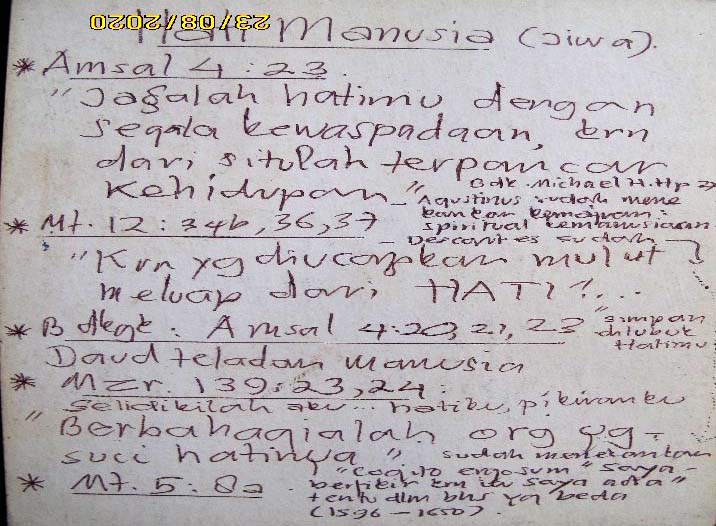 23/08/2020
Hati Manusia (Jiwa).
* Amsal 4:23.
"Jagalah hatimu dengan
segala kewaspadaan, krn
dari situlah terpancar
kehidupan"
Bdk. Michael H. Hp
- Agustinus sudah mene
kankan kemajuan:
spiritual kemanusiaan
- Descartes sudah
* Mt. 12:34b, 36, 37
"Krn yg diucapkan mulut
meluap dari HATI!"...
* Bdkgk: Amsal 4:20, 21, 23
"simpan
dilubuk
Hatimu
Daud teladan manusia
* Mzr. 139:23, 24:
Selidikilah aku... hatiku, pikiranku
"Berbahagialah org yg-
suci hatinya"
* Mt. 5:8a
sudah menekankan
"Cogito ergosum" saya-
berfikir krn itu saya ada"
tentu dlm bhs yg beda
(1596-1650).